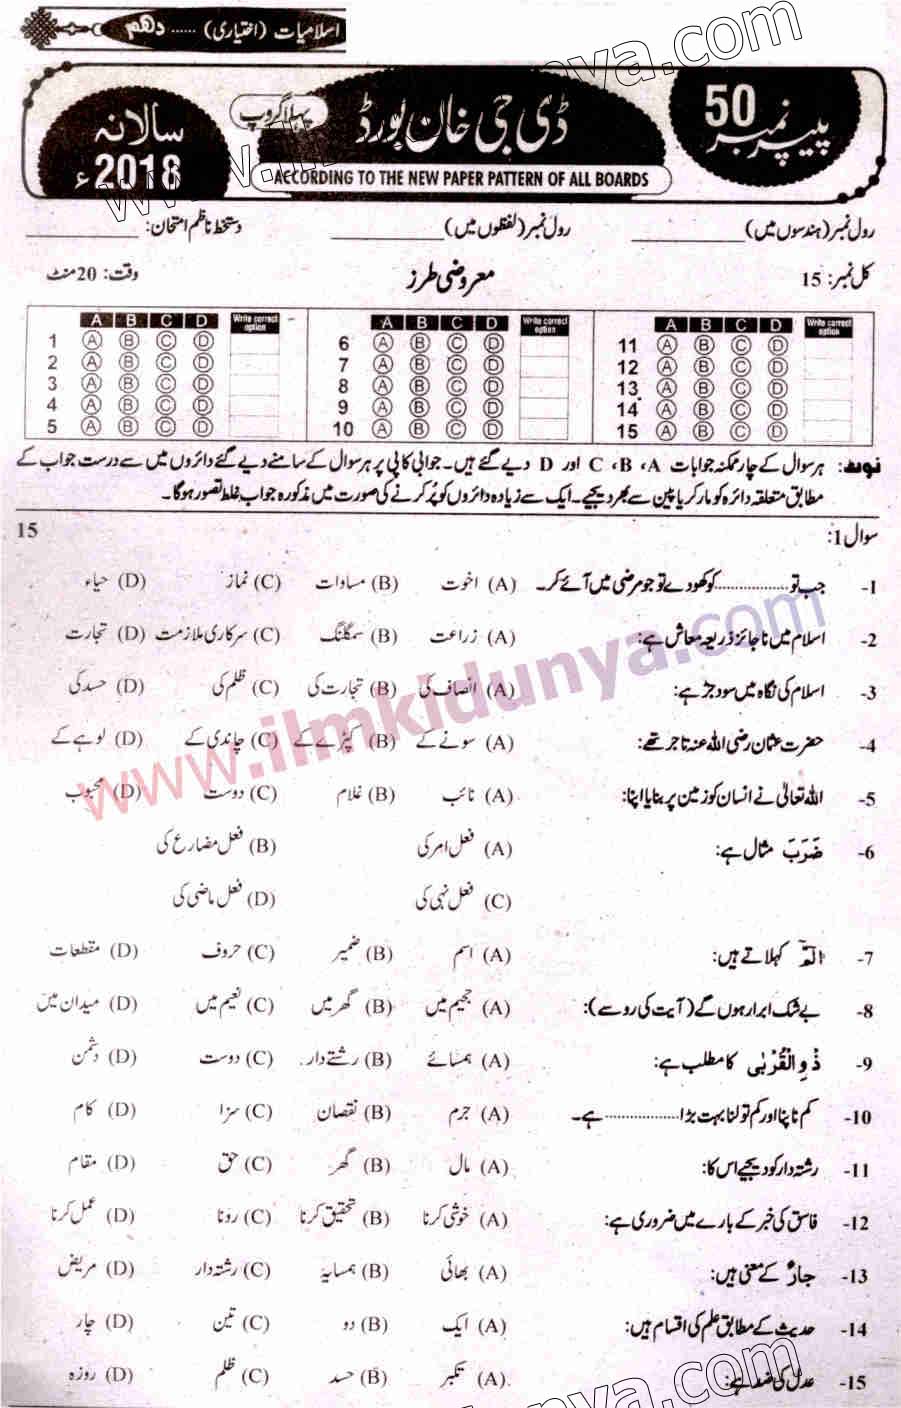 اسلامیات (اختیاری) ...... دہم
پیپر نمبر 50
ڈی جی خان بورڈ
پہلا گروپ
سالانہ
2018ء
ACCORDING TO THE NEW PAPER PATTERN OF ALL BOARDS
رول نمبر (ہندسوں میں) ____________ رول نمبر (لفظوں میں) ____________ دستخط ناظم امتحان: ____________
کل نمبر: 15 معروضی طرز وقت: 20 منٹ
A B C D Write correct option A B C D Write correct option A B C D Write correct option
1 A B C D 6 A B C D 11 A B C D
2 A B C D 7 A B C D 12 A B C D
3 A B C D 8 A B C D 13 A B C D
4 A B C D 9 A B C D 14 A B C D
5 A B C D 10 A B C D 15 A B C D
نوٹ: ہر سوال کے چار ممکنہ جوابات A، B، C اور D دیے گئے ہیں۔ جوابی کاپی پر ہر سوال کے سامنے دیے گئے دائروں میں سے درست جواب کے
مطابق متعلقہ دائرہ کو مارکر یا پین سے بھر دیجیے۔ ایک سے زیادہ دائروں کو پُر کرنے کی صورت میں مذکورہ جواب غلط تصور ہوگا۔
سوال 1: 15
1- جب تو ............ کو کھو دے تو جو مرضی میں آئے کر۔ (A) اخوت (B) مساوات (C) نماز (D) حیاء
2- اسلام میں ناجائز ذریعہ معاش ہے: (A) زراعت (B) سمگلنگ (C) سرکاری ملازمت (D) تجارت
3- اسلام کی نگاہ میں سود جڑ ہے: (A) انصاف کی (B) تجارت کی (C) ظلم کی (D) حسد کی
4- حضرت عثمان رضی اللہ عنہ تاجر تھے: (A) سونے کے (B) کپڑے کے (C) چاندی کے (D) لوہے کے
5- اللہ تعالیٰ نے انسان کو زمین پر بنایا اپنا: (A) نائب (B) غلام (C) دوست (D) محبوب
6- ضَرَبَ مثال ہے: (A) فعل امر کی (B) فعل مضارع کی
(C) فعل نہی کی (D) فعل ماضی کی
7- الٓمّٓ کہلاتے ہیں: (A) اسم (B) ضمیر (C) حروف (D) مقطعات
8- بے شک ابرار ہوں گے (آیت کی رو سے): (A) جحیم میں (B) گھر میں (C) نعیم میں (D) میدان میں
9- ذُوالْقُرْبٰی کا مطلب ہے: (A) ہمسائے (B) رشتے دار (C) دوست (D) دشمن
10- کم ناپنا اور کم تولنا بہت بڑا ............ ہے۔ (A) جرم (B) نقصان (C) سزا (D) کام
11- رشتہ دار کو دیجیے اس کا: (A) مال (B) گھر (C) حق (D) مقام
12- فاسق کی خبر کے بارے میں ضروری ہے: (A) خوشی کرنا (B) تحقیق کرنا (C) رونا (D) عمل کرنا
13- جارٌ کے معنی ہیں: (A) بھائی (B) ہمسایہ (C) رشتہ دار (D) مریض
14- حدیث کے مطابق علم کی اقسام ہیں: (A) ایک (B) دو (C) تین (D) چار
15- عدل کی ضد ہے: (A) تکبر (B) حسد (C) ظلم (D) روزہ
www.ilmkidunya.com